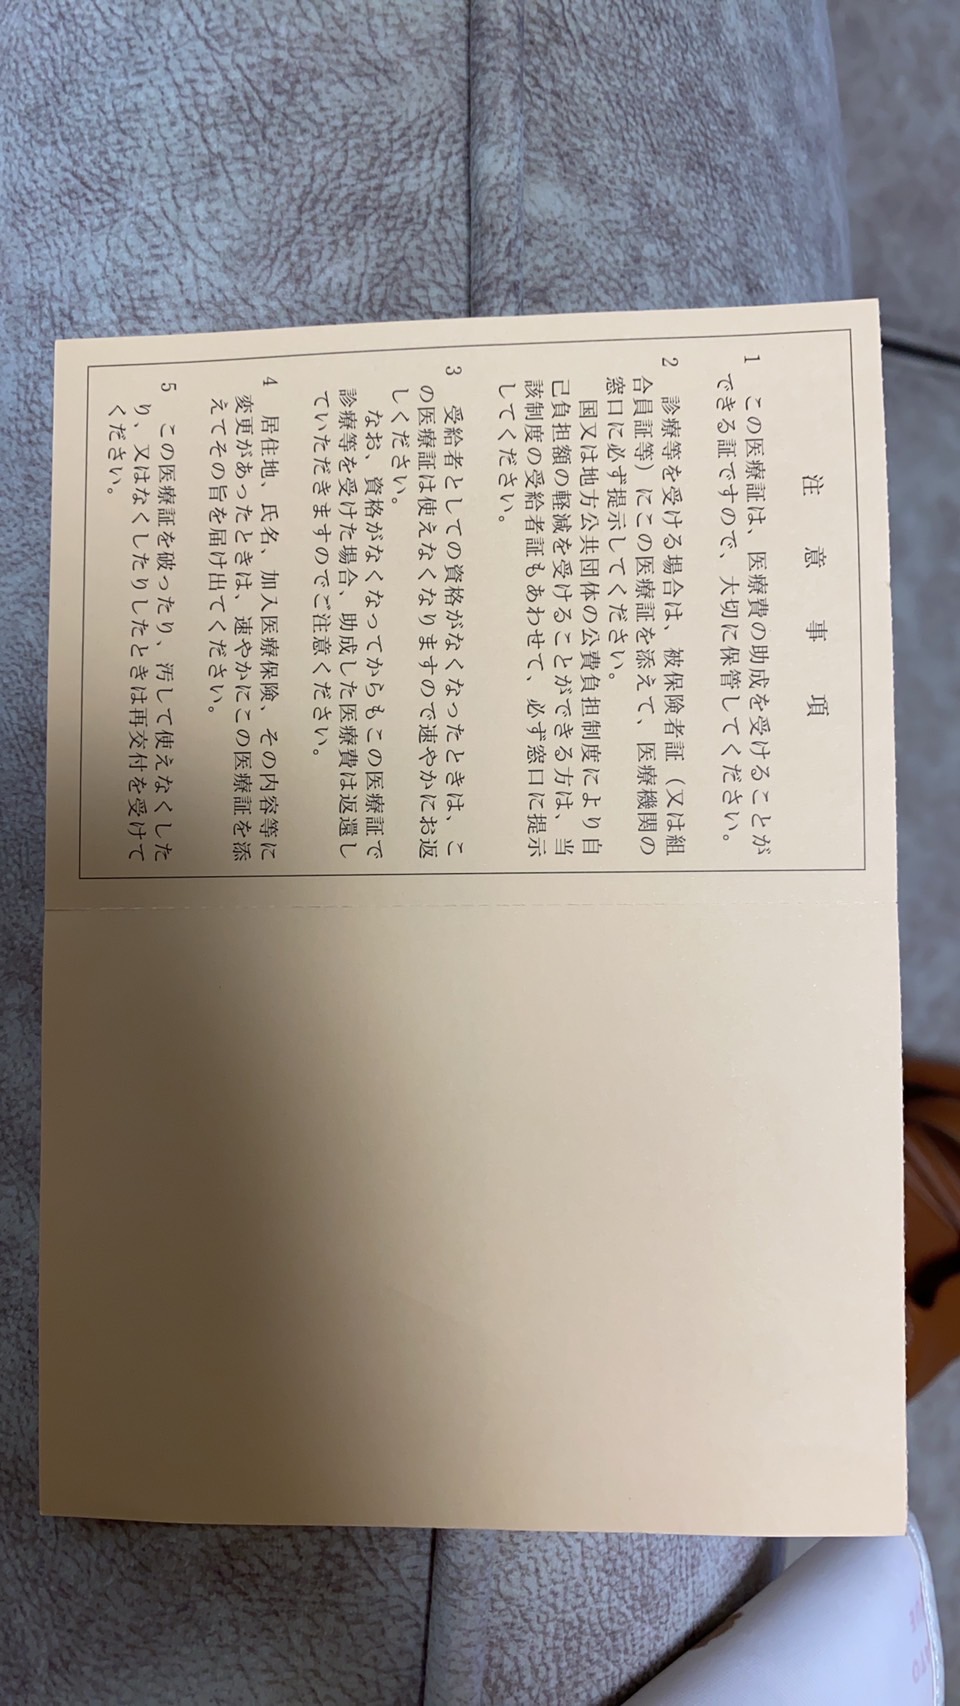 注意事項
1 この医療証は、医療費の助成を受けることが
できる証ですので、大切に保管してください。
2 診療等を受ける場合は、被保険者証（又は組
合員証等）にこの医療証を添えて、医療機関の
窓口に必ず提示してください。
国又は地方公共団体の公費負担制度により自
己負担額の軽減を受けることができる方は、当
該制度の受給者証もあわせて、必ず窓口に提示
してください。
3 受給者としての資格がなくなったときは、こ
の医療証は使えなくなりますので速やかにお返
しください。
なお、資格がなくなってからもこの医療証で
診療等を受けた場合、助成した医療費は返還し
ていただきますのでご注意ください。
4 居住地、氏名、加入医療保険、その内容等に
変更があったときは、速やかにこの医療証を添
えてその旨を届け出てください。
5 この医療証を破ったり、汚して使えなくした
り、又はなくしたりしたときは再交付を受けて
ください。